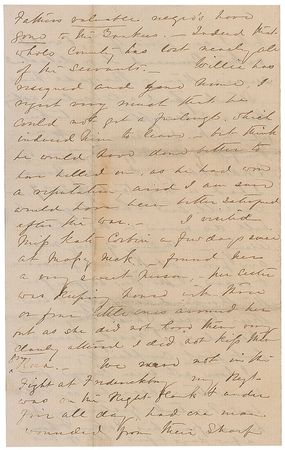 Fathers valuable negro's have
gone to the Yankees. — Indeed that
whole County has lost nearly all
of the Servants. — Willie has
resigned and gone home, I
regret very much that he
could not get a furlough, which
induced him to leave, — but think
he would have done better to
have held on, as he had won
a reputation and I am sure
would have been better satisfied
after the war. — I visited
Miss Kate Corbin a few days since
at Moss Neck — found her
a very sweet person, her sister
was keeping house with three
or four little ones around her
but as she did not have them very
cleanly attired I did not kiss
them. We were not in the
Fight at Fredericksburg my Regt
was on the Right flank & under
Fire all day, had one man
wounded from their Sharp